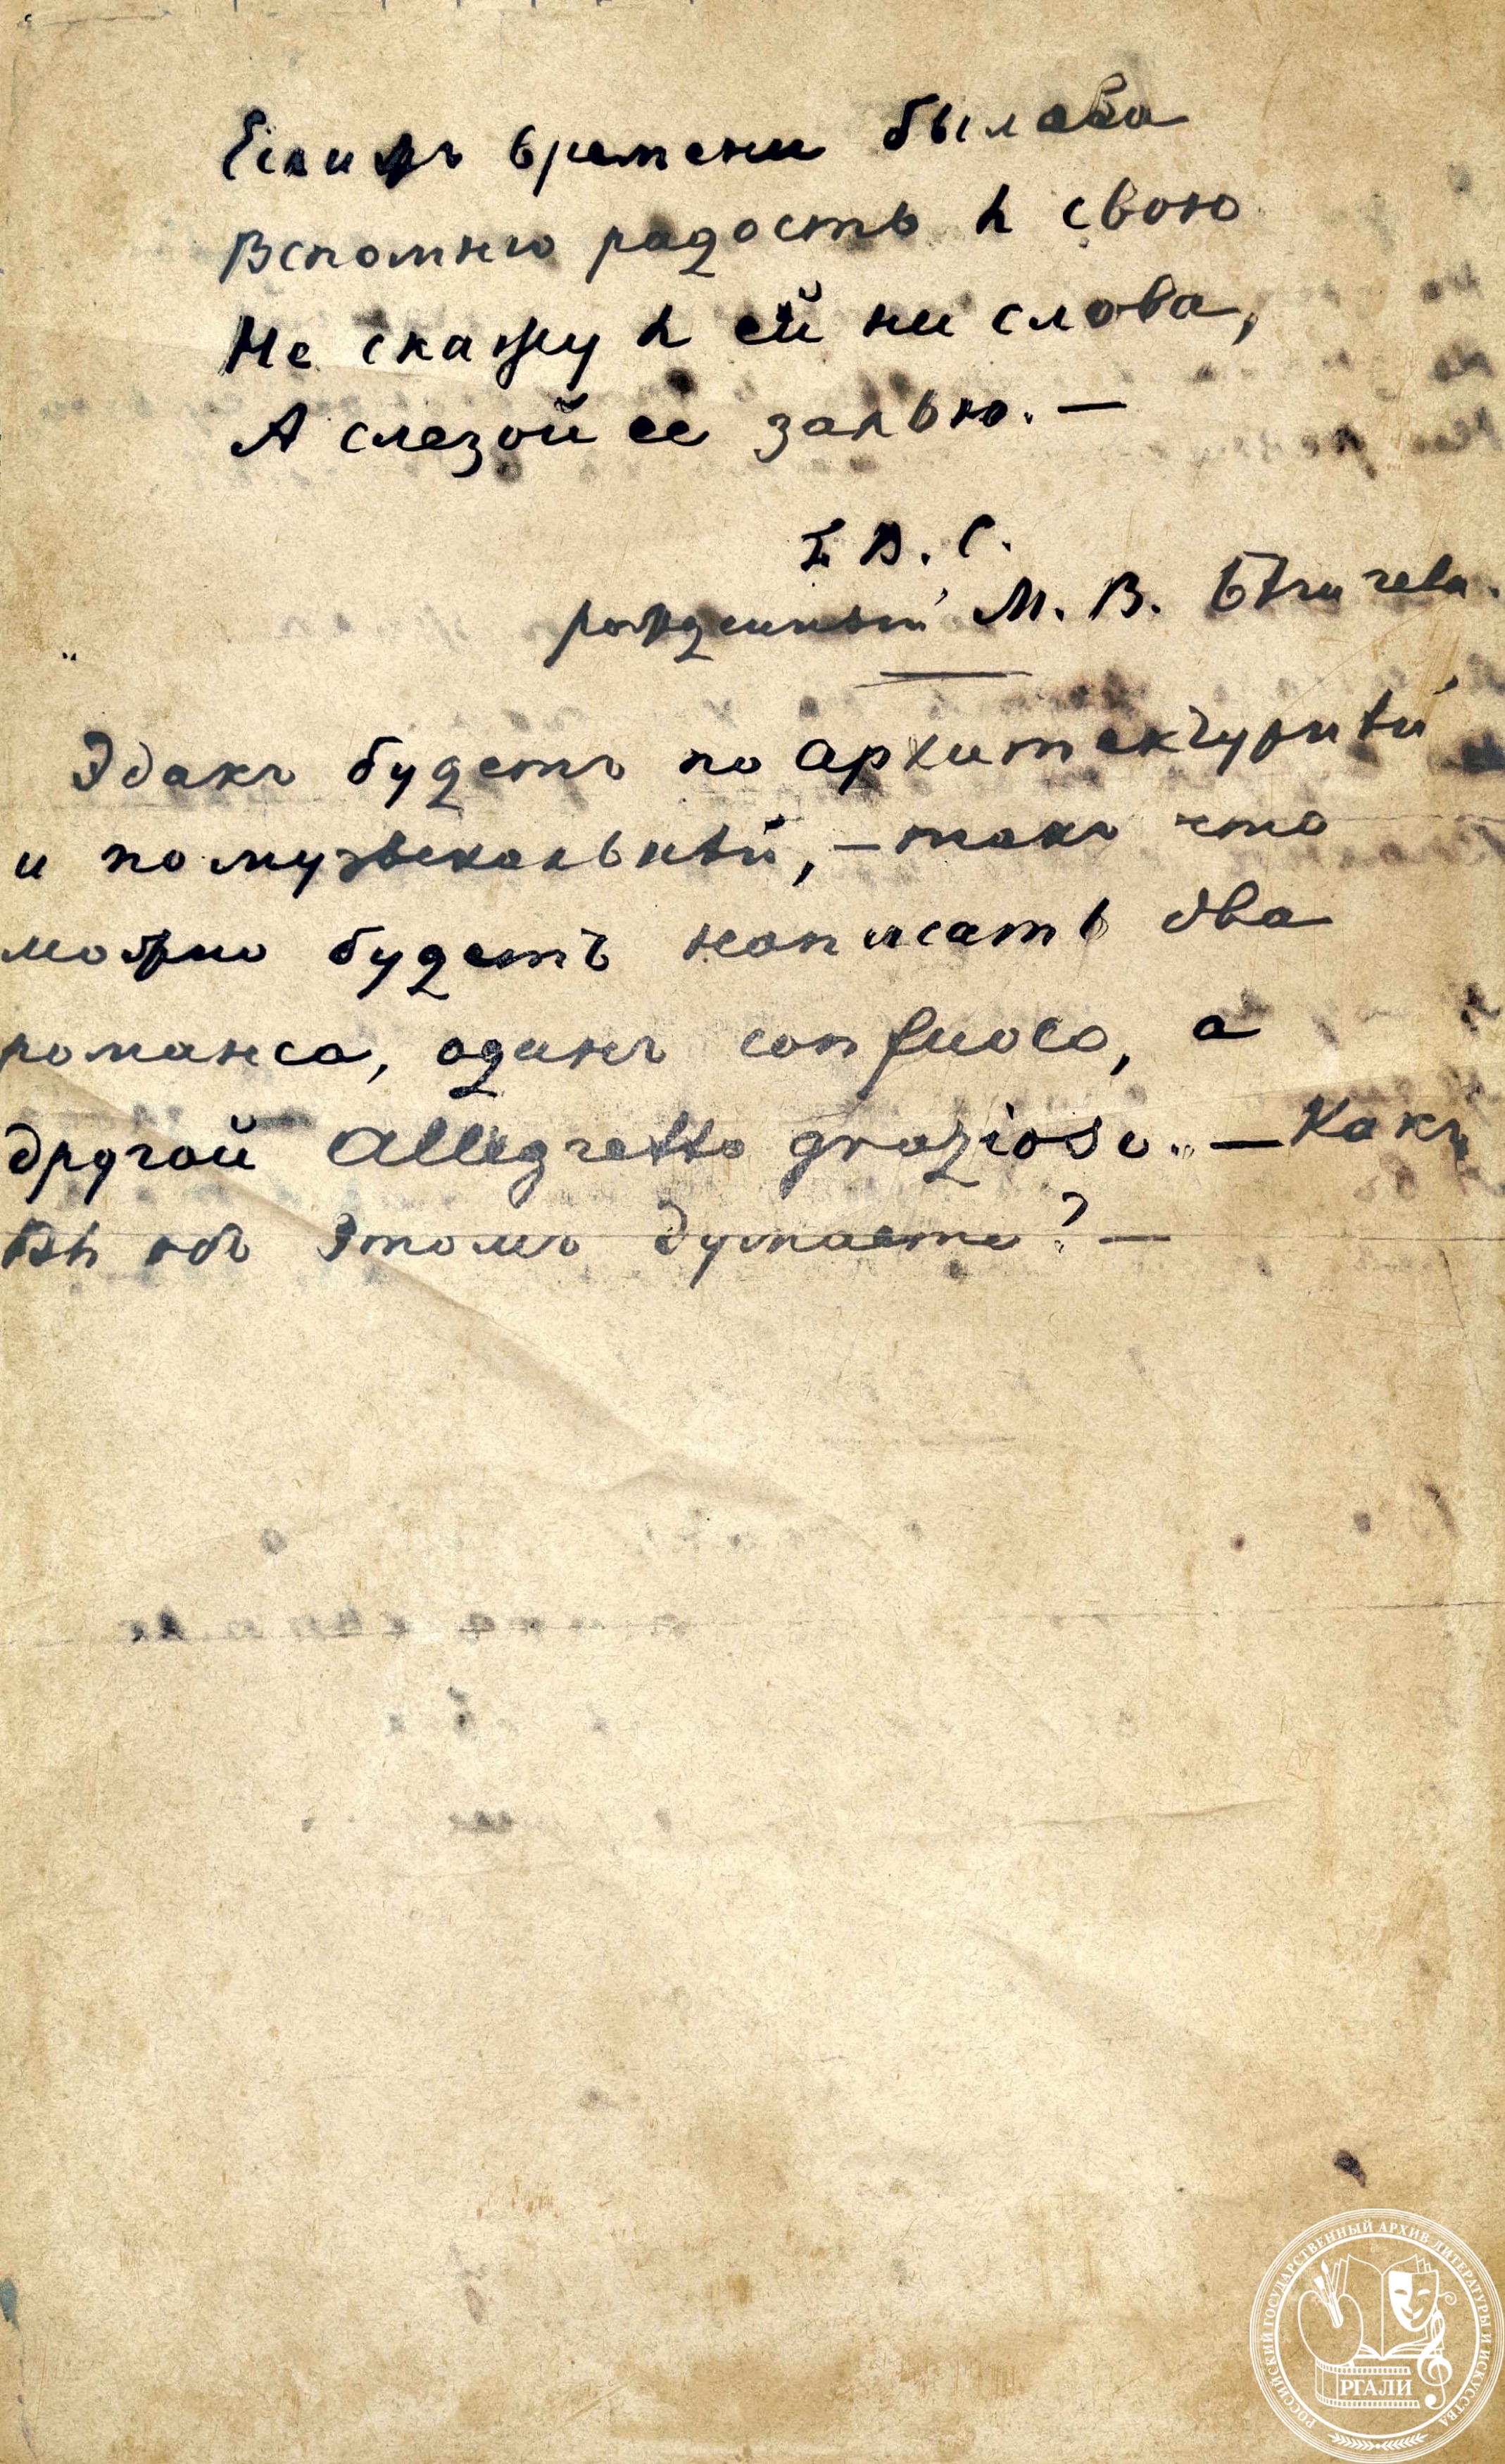 Если жъ времени былова
Вспомню радость я свою
Не скажу я ей ни слова,
А слезой ее залью. —
В. С.
рожденный М. В. Бѣгичева.
Эдакъ будетъ по архитектурнѣй
и по музыкальнѣй, — такъ что
можно будетъ написать два
романса, одинъ con fuoco, а
другой Allegretto grazioso. — Какъ
Вы объ этомъ думаете? —
РОССИЙСКИЙ ГОСУДАРСТВЕННЫЙ АРХИВ ЛИТЕРАТУРЫ И ИСКУССТВА
РГАЛИ